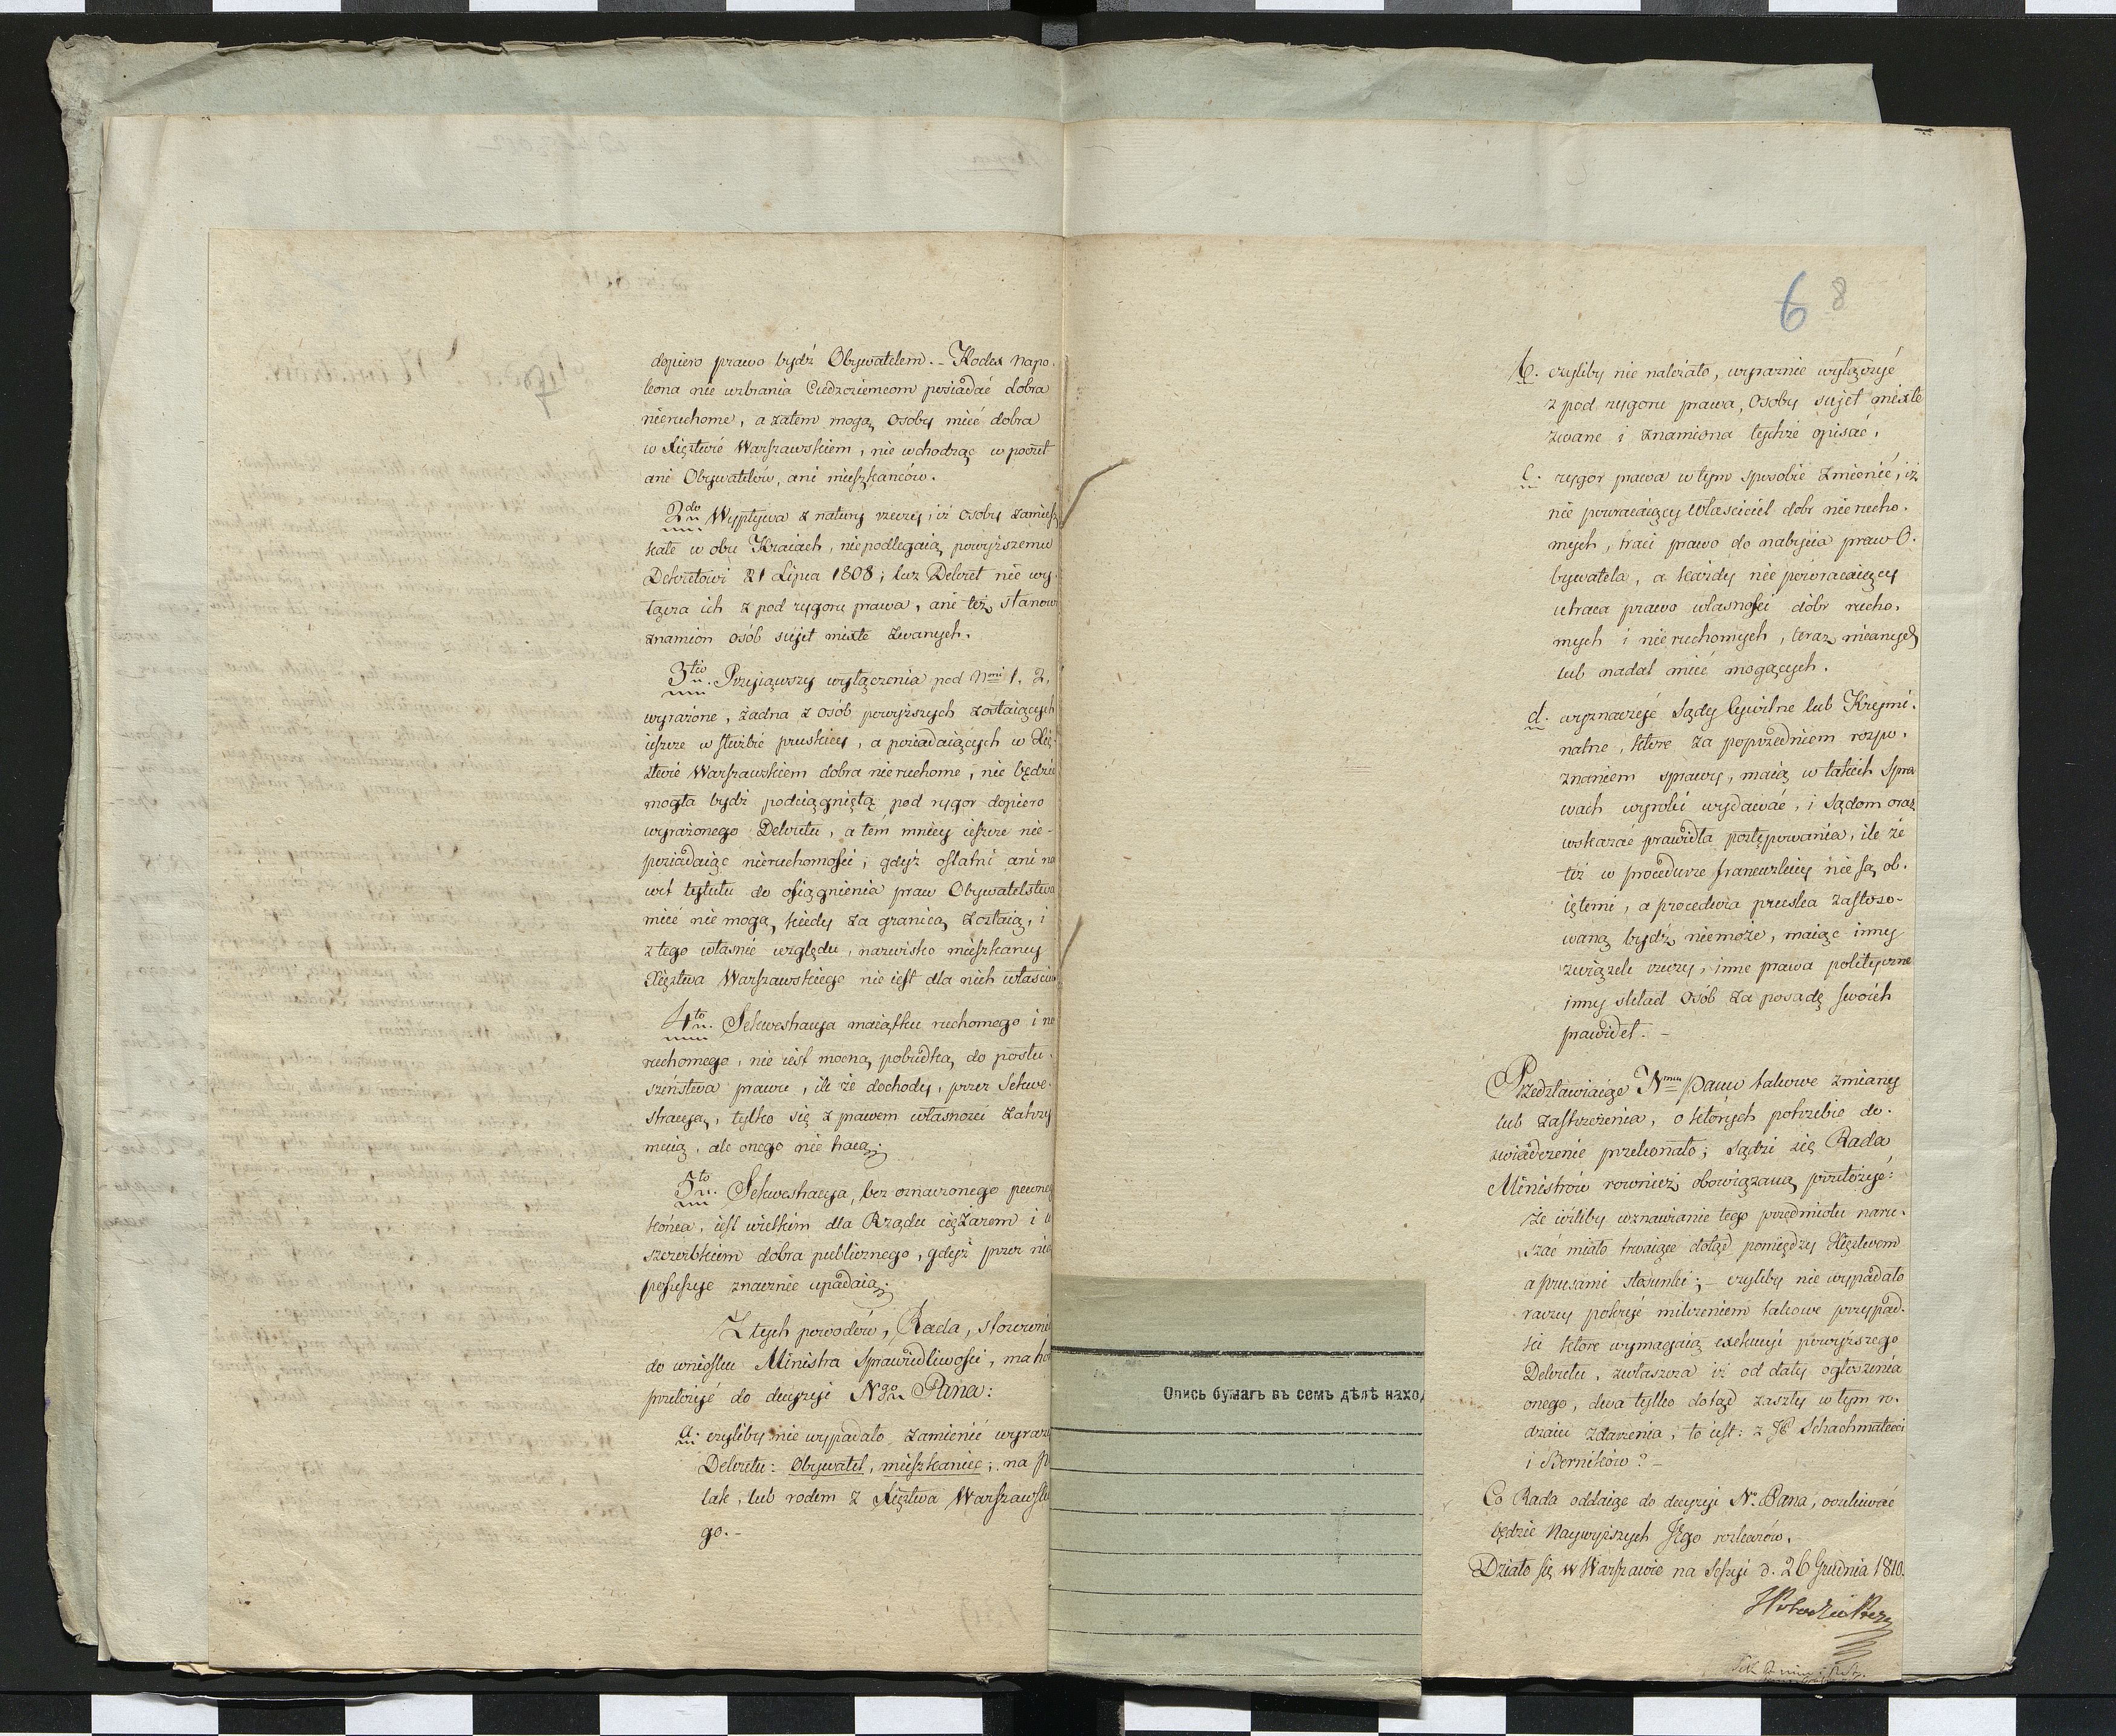 dopiero prawo bydź Obywatelem. - Kodex Napo-
leona nie wzbrania Cudzoziemcom posiadać dobra
nieruchome, a zatem mogą osoby mieć dobra
w Xięztwie Warszawskiem, nie wchodząc w poczet
ani Obywatelów, ani mieszkańców.
2do Wypływa z natury rzeczy, iż osoby zamiesz
kałe w obu Kraiach, niepodlegaią powyższemu
Dekretowi 21 Lipca 1808; lecz Dekret nie wy-
łącza ich z pod rygoru prawa, ani też stanowi
znamion osób sujet mixte zwanych.
3tio Przyiąwszy wyłączenia pod Nmi 1. 2.
wyrażone, żadna z osób powyższych zostaiących
ieszcze w służbie pruskiey, a posiadaiących w Xię-
ztwie Warszawskiem dobra nieruchome, nie będzie
mogła bydź podciągniętą pod rygor dopiero
wyrażonego Dekretu, a tém mniey ieszcze nie-
posiadaiąc nieruchomości, gdyż ostatni ani na
wet tytułu do osiągnienia praw Obywatelstwa
mieć nie mogą, kiedy za granicą zostaią, i
z tego własnie względu, nazwisko mieszkańcy
Xięztwa Warszawskiego nie iest dla nich właściw
4to Sekwestracya maiątku ruchomego i nie
ruchomego, nie iest mocną pobudką do posłu-
szeństwa prawu, ile że dochody, przez Sekwe-
stracyą, tylko się z prawem własności zatrzy
muią, ale onego nie tracą;
5to Sekwestracya, bez oznaczonego pewneg
końca, iest wielkim dla Rządu ciężarem i u
szczerbkiem dobra publicznego, gdyż przez nię
possessye znacznie upadaią;
Z tych powodów, Rada, stosownie
do wniosku Ministra Sprawiedliwości, ma ho
przełożyć do decyzyi Nego Pana:
a. czyliby nie wypadało zamienić wyrazu
Dekretu: Obywatel, mieszkaniec; na Po
lak, lub rodem z Xięztwa Warszawskie
go. -
6 8
b. czyliby nie należało, wyraznie wyłączyć
z pod rygoru prawa, osoby sujet mixte
zwane i znamiona tychże opisać,
c. rygor prawa w tym sposobie zmienić, iż
nie powracaiący właściciel dobr nierucho-
mych, traci prawo do nabycia praw O-
bywatela, a każdy nie powracaiący
utraca prawo własności dóbr rucho-
mych i nieruchomych, teraz mianych
lub nadal mieć mogących.
d. wyznaczyć Sądy Cywilne lub Krymi-
nalne, które za poprzedniem rozpo-
znaniem sprawy, maią w takich Spra
wach wyroki wydawać, i Sądom oraz
wskazać prawidła postępowania, ile że
też w procedurze francuzkiey nie są ob-
iętemi, a procedura pruska zastoso-
waną bydź niemoże, maiąc inny
związek rzeczy, inne prawa polityczne
inny skład osób za posadę swoich
prawideł. -
Przedstawiaiąc Nmu Panu takowe zmiany
lub zastrzeżenia, o których potrzebie do-
swiadczenie przekonało; sądzi się Rada
Ministrów rownież obowiązaną przełożyć:
że ieżliby wznawianie tego przedmiotu naru-
szać miało trwaiące dotąd pomiędzy Xięztwem
a prusami stosunki; - czyliby nie wypadało
raczey pokryć milczeniem takowe przypad-
ki które wymagaią exekucyi powyższego
Dekretu, zwłaszcza iż od daty ogłoszenia
onego, dwa tylko dotąd zaszły w tym ro-
dzaiu zdarzenia, to iest: z JP. Schachmateci
i Berników? -
Co Rada oddaiąc do decyzyi No. Pana, oczekiwać
będzie Naywyższych Jego rozkazów. -
Działo się w Warszawie na Sessyi d. 26 Grudnia 1810.
Опись бумагъ въ семъ дѣлѣ нахо